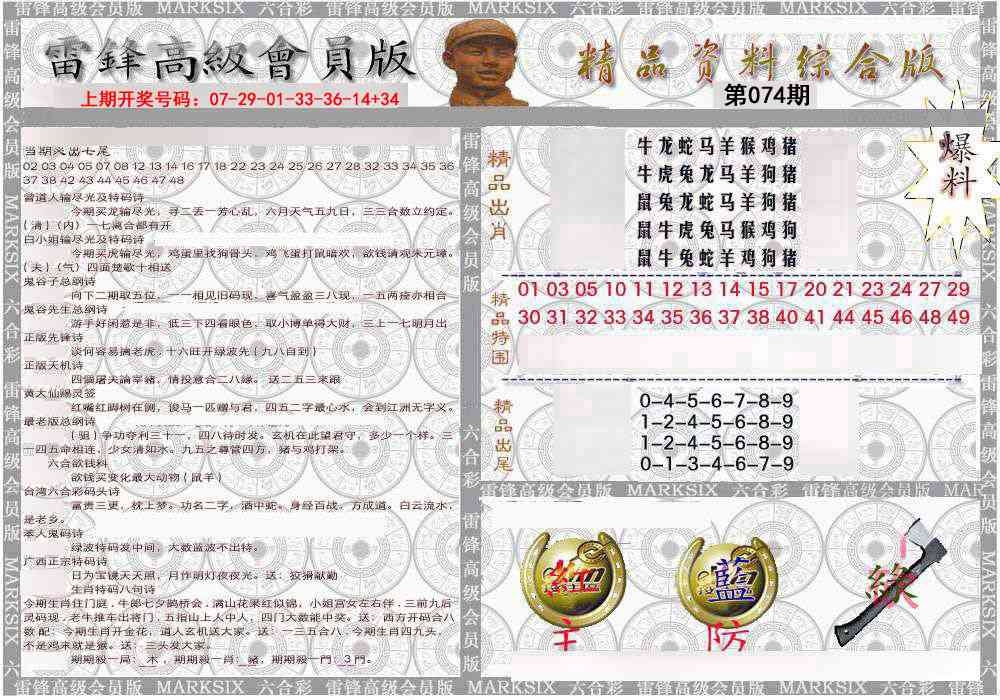 雷锋高级会员版 MARKSIX 六合彩 雷锋高级会员版 MARKSIX 六合彩 雷锋高级会员版 MARKSIX 六合彩
雷鋒高級會員版
上期开奖号码：07-29-01-33-36-14+34
精品资料综合版
第074期
爆料
02 03 04 05 07 08 12 13 14 16 17 18 22 23 24 25 26 27 28 32 33 34 35 36
37 38 42 43 44 45 46 47 48
曾道人输尽光及特码诗
今期买龙输尽光，寻二丢一芳心乱，六月天气五九日，三三合数立约定。
(清)(内)一七离合都有开
白小姐输尽光及特码诗
今期买虎输尽光，鸡蛋里找狗骨头，鸡飞蛋打鼠暗欢，欲钱请观朱元璋。
(夫)(气)四面楚歌十相送
鬼谷子总纲诗
向下二期取五位，一一相见旧码现，喜气盈盈三八现，一五两痊亦相合
鬼谷先生总纲诗
游手好闲惹是非，低三下四看眼色，取小博单得大财，三上一七明月出
正版先锋诗
谈何容易擒老虎，十六旺开绿波先(九八自到)
正版天机诗
四個屠夫論宰豬，情投意合二八緣。送二五三来跟
黄大仙赐灵签
红嘴红脚树在侧，俊马一匹赠与君，四五二字最心水，会到江洲无字义。
最老版总纲诗
(诅)争功夺利三十一，四八待时发。玄机在此望君守，多少一个样。三
一四五命相连，少女清如水。九五之尊管四方，猪与鸡打架。
六合欲钱料
欲钱买变化最大动物(鼠羊)
台湾六合彩码头诗
富贵三更，枕上梦。功名二字，酒中蛇。身经百战。方成道。白云流水，
是老乡。
本人鬼码诗
绿波特码发中间，大数蓝波不出特。
广西正宗特码诗
日为宝镜天天照，月作明灯夜夜光。送：狡猾献勤
生肖特码八句诗
今期生肖住门庭，牛郎七夕鹊桥会，满山花果红似锦，小姐宫女左右伴，三前九后
灵码现，老牛推车出将门，五指山上人中人，四门大数能中奖。送：西方开码合八
数 配：今期生肖开金花，道人玄机送大家。送：一三五合八，今期生肖四九头，
不是鸡来就是猴。送：三头发大家。
期期殺一局：木，期期殺一肖：豬，期期殺一門：3門。
精品出肖
牛龙蛇马羊猴鸡猪
牛虎兔龙马羊狗猪
鼠兔龙蛇马羊狗猪
鼠牛虎兔马猴鸡狗
鼠牛兔蛇羊鸡狗猪
精品特围
01 03 05 10 11 12 13 14 15 17 20 21 23 24 27 29
30 31 32 33 34 35 36 37 38 40 41 44 45 46 48 49
精品出尾
0-4-5-6-7-8-9
1-2-4-5-6-8-9
1-2-4-5-6-8-9
0-1-3-4-6-7-9
雷锋高级会员版 MARKSIX 六合彩 雷锋高级会员版
紅
主
藍
防
綠
雷锋高级会员版 MARKSIX 六合彩 雷锋高级会员版 MARKSIX 六合彩 雷锋高级会员版 MARKSIX 六合彩